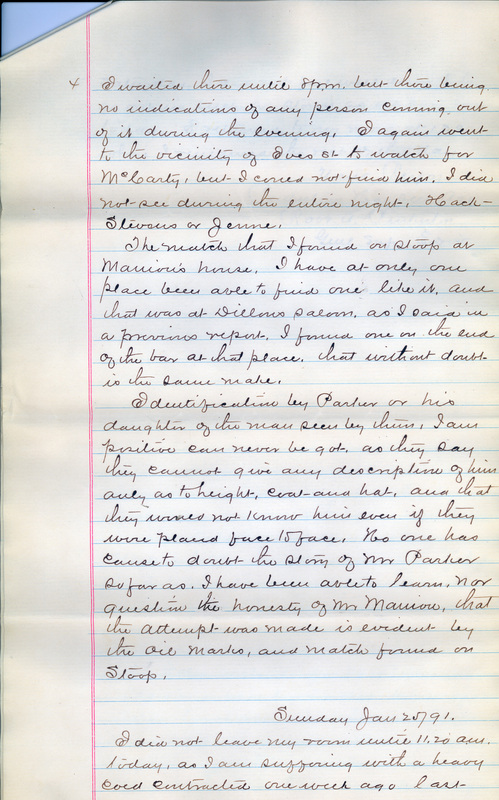 4 I waited there until 8 p.m. but there being
no indications of any person coming out
of it during the evening, I again went
to the vicinity of Ives St to watch for
McCarty, but I coued not find him. I did
not see during the entire night, Hack-
Stevens or Jenne.
The match that I found on stoop at
Manion's house, I have at only one
place been able to find one like it, and
that was at Dillons saloon, as I said in
a previous report, I found one on the end
of the bar at that place, that without doubt
is the same make.
Identification by Parker or his
daughter of the man seen by them, I am
positive can never be got, as they say
they cannot give any description of him
only as to height, coat and hat, and that
they woued not know him even if they
were placed face to face. No one has
cause to doubt the story of Mr Parker
so far as I have been able to learn, nor
question the honesty of Mr Manion, that
the attempt was made is evident by
the oil marks, and match found on
stoop.
Sunday Jan 25/91.
I did not leave my room until 11.20 a.m.
today, as I am suffering with a heavy
coed contracted one week ago last-